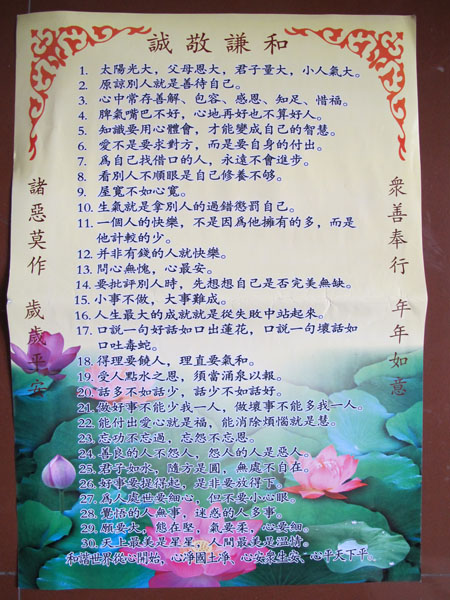 誠敬謙和
1. 太陽光大，父母恩大，君子量大，小人氣大。
2. 原諒別人就是善待自己。
3. 心中常存善解、包容、感恩、知足、惜福。
4. 脾氣嘴巴不好，心地再好也不算好人。
5. 知識要用心體會，才能變成自己的智慧。
6. 愛不是要求對方，而是要自身的付出。
7. 爲自己找借口的人，永遠不會進步。
8. 看別人不順眼是自己修養不够。
9. 屋寬不如心寬。
10. 生氣就是拿別人的過錯懲罰自己。
11. 一個人的快樂，不是因爲他擁有的多，而是
他計較的少。
12. 并非有錢的人就快樂。
13. 問心無愧，心最安。
14. 要批評別人時，先想想自己是否完美無缺。
15. 小事不做，大事難成。
16. 人生最大的成就就是從失敗中站起來。
17. 口説一句好話如口出蓮花，口説一句壞話如
口吐毒蛇。
18. 得理要饒人，理直要氣和。
19. 受人點水之恩，須當涌泉以報。
20. 話多不如話少，話少不如話好。
21. 做好事不能少我一人，做壞事不能多我一人。
22. 能付出愛心就是福，能消除煩惱就是慧。
23. 忘功不忘過，忘怨不忘恩。
24. 善良的人不怨人，怨人的人是惡人。
25. 君子如水，隨方是圓，無處不自在。
26. 好事要提得起，是非要放得下。
27. 爲人處世要細心，但不要小心眼。
28. 覺悟的人無事，迷惑的人多事。
29. 願要大，能在堅，氣要柔，心要細。
30. 天上最美是星星，人間最美是溫情。
和諧世界從心開始，心淨國土淨、心安衆生安、心平天下平。
衆善奉行 年年如意
諸惡莫作 歲歲平安